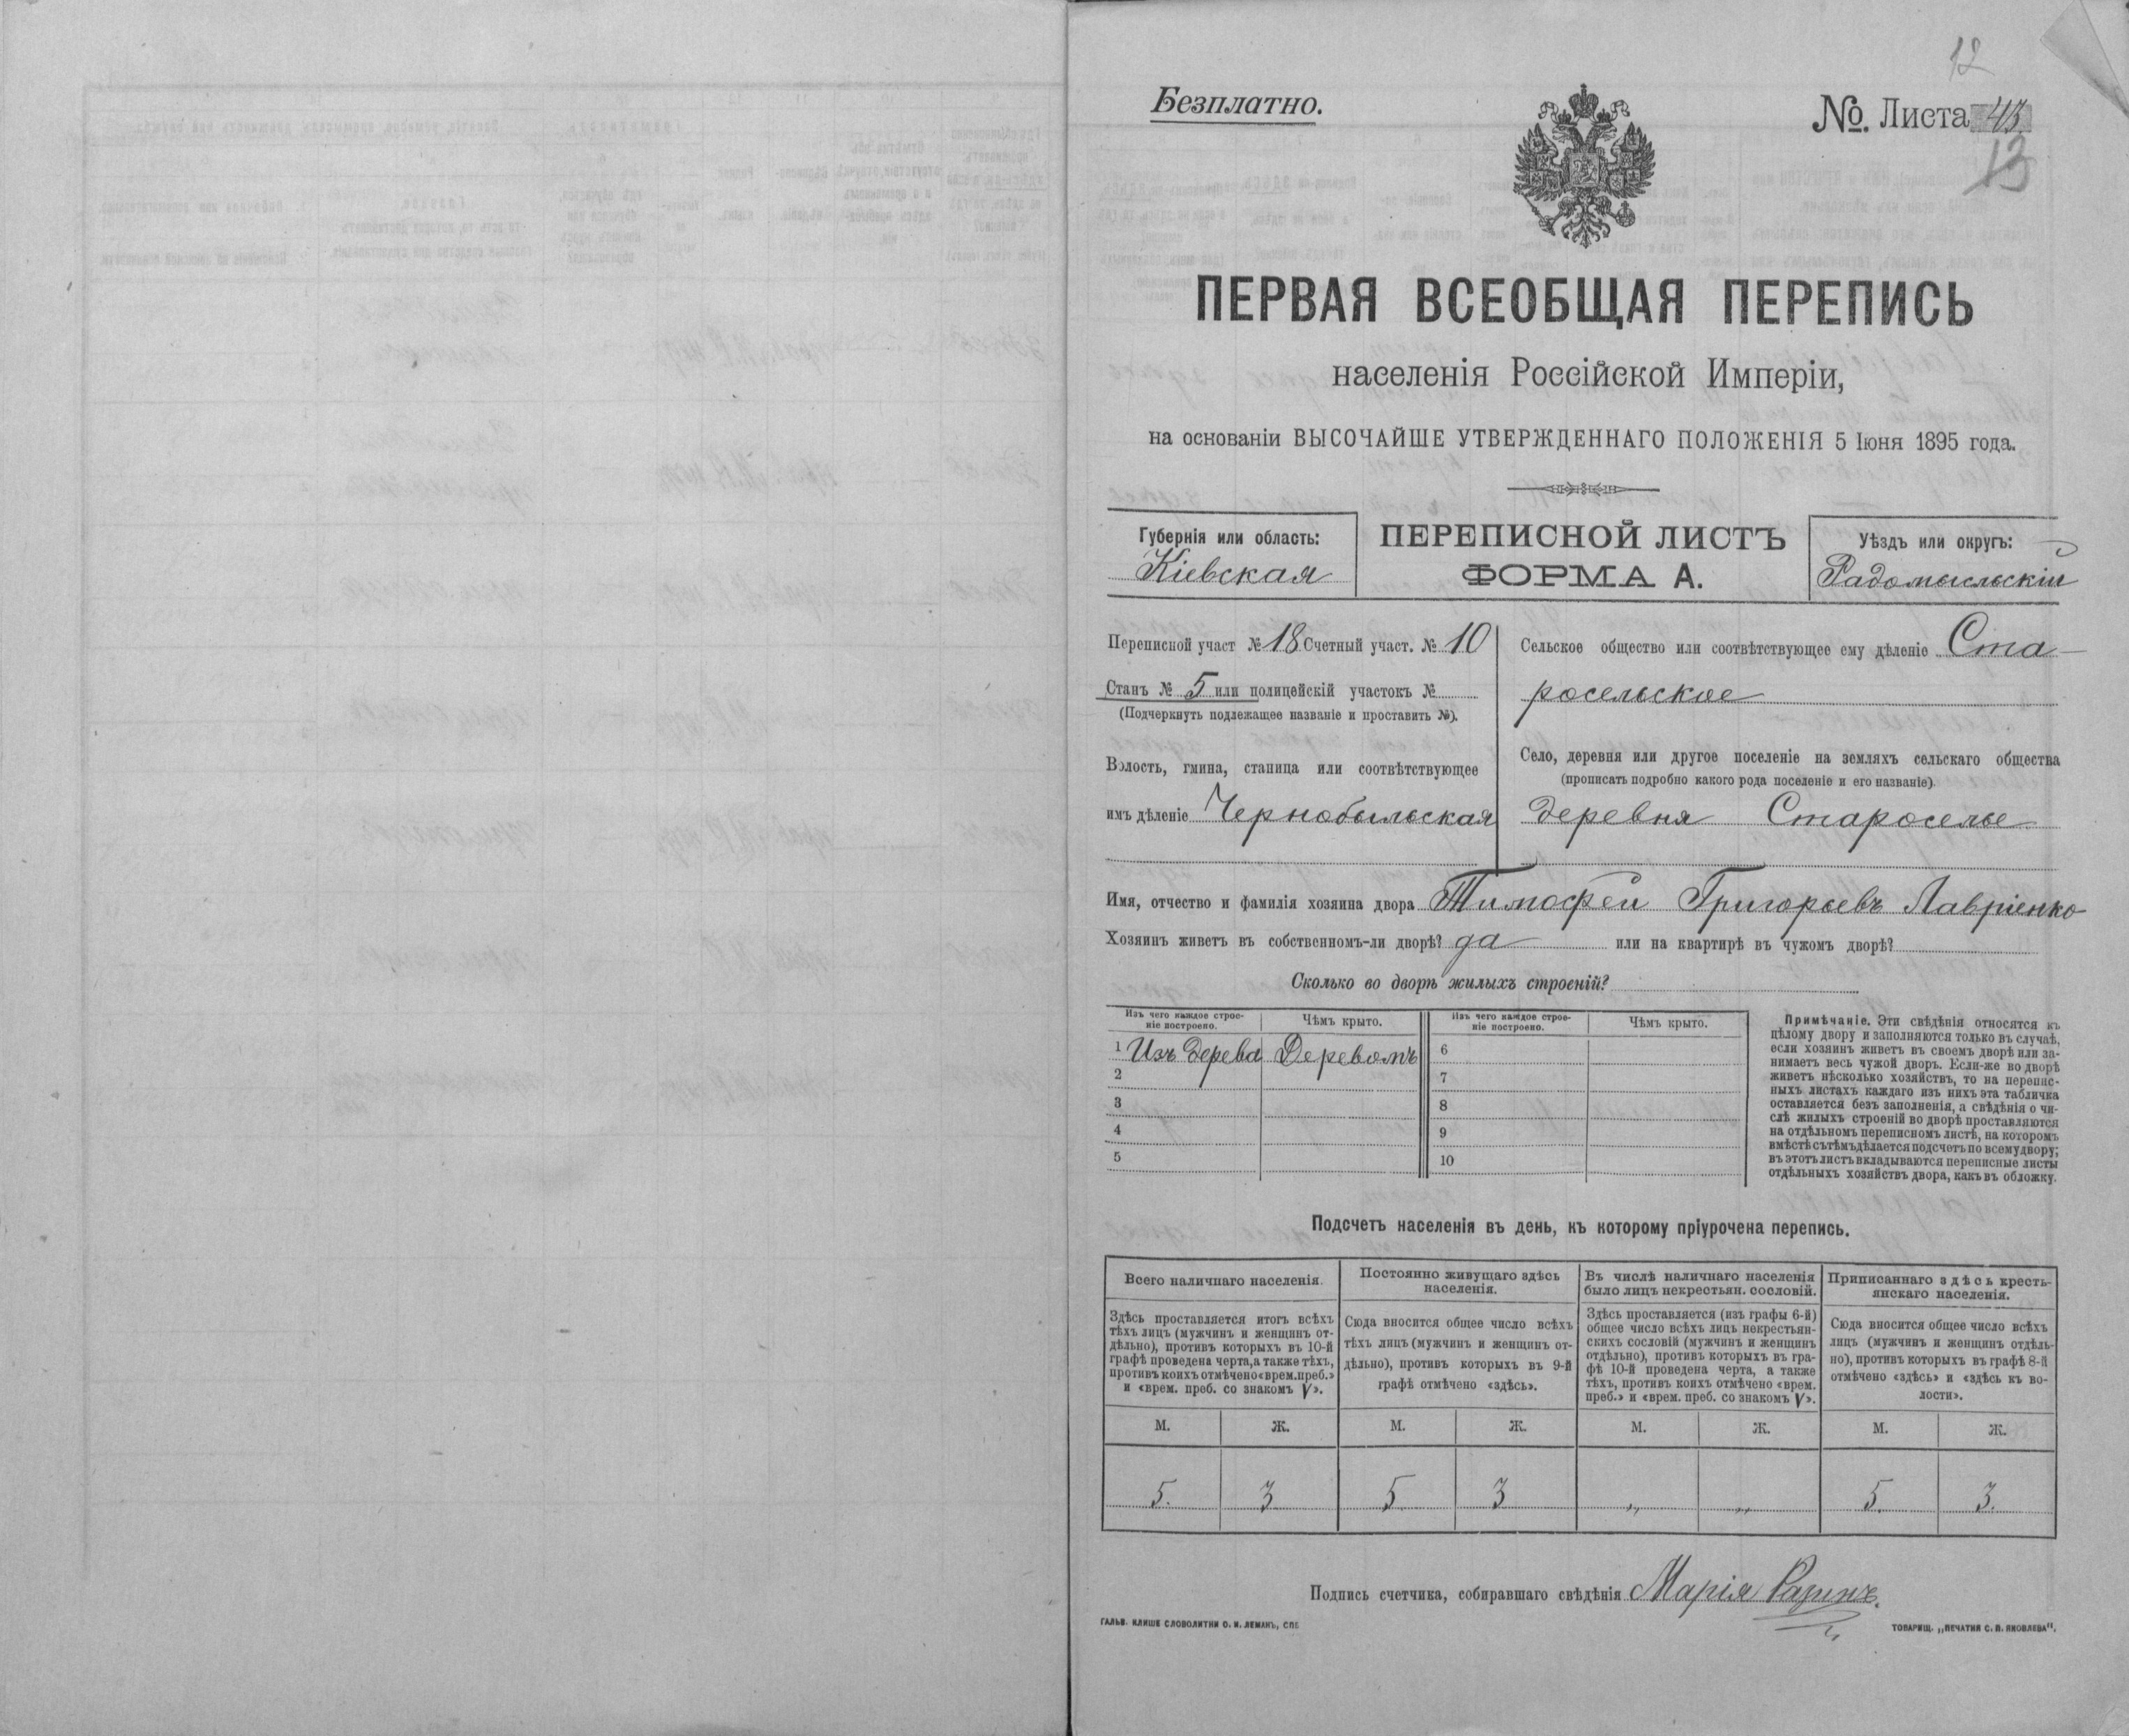 12
Безплатно.
№. Листа 43
13
ПЕРВАЯ ВСЕОБЩАЯ ПЕРЕПИСЬ
населенія Россійской Имперіи,
на основаніи ВЫСОЧАЙШЕ УТВЕРЖДЕННАГО ПОЛОЖЕНІЯ 5 Іюня 1895 года.
Губернія или область:
Кіевская
ПЕРЕПИСНОЙ ЛИСТЪ
ФОРМА А.
Уѣздъ или округъ:
Радомысльскій
Переписной участ № 18 Счетный участ. № 10
Станъ № 5 или полицейскій участокъ №
(Подчеркнуть подлежащее названіе и проставить №).
Волость, гмина, станица или соотвѣтствующее
имъ дѣленіе Чернобыльская
Сельское общество или соотвѣтствующее ему дѣленіе Ста-
росельское
Село, деревня или другое поселеніе на земляхъ сельскаго общества
(прописать подробно какого рода поселеніе и его названіе).
деревня Староселье
Имя, отчество и фамилія хозяина двора Тимофей Григорьевъ Лавріенко
Хозяинъ живетъ въ собственномъ-ли дворѣ? да или на квартирѣ въ чужомъ дворѣ?
Сколько во дворѣ жилыхъ строеній?
Изъ чего каждое строе-
ніе построено.
Чѣмъ крыто.
Изъ чего каждое строе-
ніе построено.
Чѣмъ крыто.
1 Изъ дерева Деревомъ 6
2 7
3 8
4 9
5 10
Примѣчаніе. Эти свѣдѣнія относятся къ
цѣлому двору и заполняются только въ случаѣ,
если хозяинъ живетъ въ своемъ дворѣ или за-
нимаетъ весь чужой дворъ. Если-же во дворѣ
живетъ нѣсколько хозяйствъ, то на перепис-
ныхъ листахъ каждаго изъ нихъ эта табличка
оставляется безъ заполненія, а свѣдѣнія о чи-
слѣ жилыхъ строеній во дворѣ проставляются
на отдѣльномъ переписномъ листѣ, на которомъ
вмѣстѣ съ тѣмъ дѣлается подсчетъ по всему двору;
въ этотъ листъ вкладываются переписные листы
отдѣльныхъ хозяйствъ двора, какъ въ обложку.
Подсчетъ населенія въ день, къ которому пріурочена перепись.
Всего наличнаго населенія.
Здѣсь проставляется итогъ всѣхъ
тѣхъ лицъ (мужчинъ и женщинъ от-
дѣльно), противъ которыхъ въ 10-й
графѣ проведена черта, а также тѣхъ,
противъ коихъ отмѣчено «врем. преб.»
и «врем. преб. со знакомъ V».
Постоянно живущаго здѣсь
населенія.
Сюда вносится общее число всѣхъ
тѣхъ лицъ (мужчинъ и женщинъ от-
дѣльно), противъ которыхъ въ 9-й
графѣ отмѣчено «здѣсь».
Въ числѣ наличнаго населенія
было лицъ некрестьян. сословій.
Здѣсь проставляется (изъ графы 6-й)
общее число всѣхъ лицъ некрестьян-
скихъ сословій (мужчинъ и женщинъ
отдѣльно), противъ которыхъ въ гра-
фѣ 10-й проведена черта, а также
тѣхъ, противъ коихъ отмѣчено «врем.
преб.» и «врем. преб. со знакомъ V».
Приписаннаго здѣсь кресть-
янскаго населенія.
Сюда вносится общее число всѣхъ
лицъ (мужчинъ и женщинъ отдѣль-
но), противъ которыхъ въ графѣ 8-й
отмѣчено «здѣсь» и «здѣсь къ во-
лости».
М. Ж. М. Ж. М. Ж. М. Ж.
5. 3 5 3 „ „ 5. 3.
Подпись счетчика, собиравшаго свѣдѣнія Марія
ГАЛЬВ. КЛИШЕ СЛОВОЛИТНИ О. И. ЛЕМАНЪ, СПБ
ТОВАРИЩ. „ПЕЧАТНЯ С. П. ЯКОВЛЕВА".